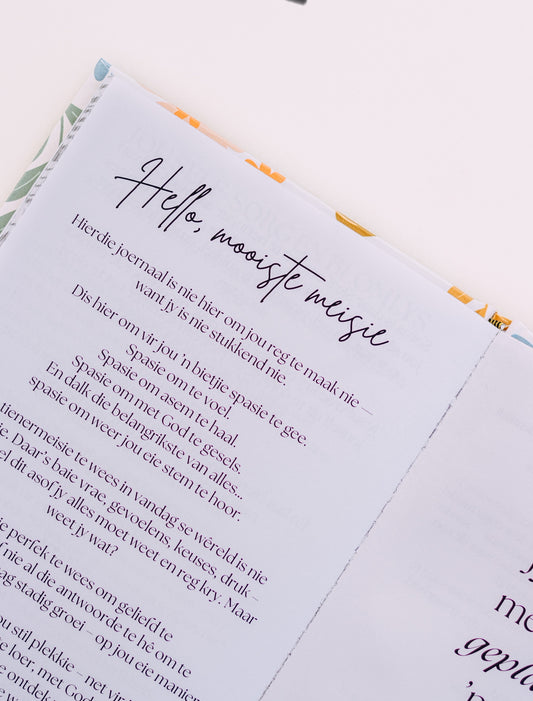 Hello, mooiste meisie
Hierdie joernaal is nie hier om jou reg te maak nie –
want jy is nie stukkend nie.
Dis hier om vir jou 'n bietjie spasie te gee.
Spasie om te voel.
Spasie om asem te haal.
Spasie om met God te gesels.
En dalk die belangrikste van alles...
spasie om weer jou eie stem te hoor.
tienermeisie te wees in vandag se wêreld is nie
Daar's baie vrae, gevoelens, keuses, druk –
dit asof jy alles moet weet en reg kry. Maar
weet jy wat?
perfek te wees om geliefd te
nie al die antwoorde te hê om te
stadig groei – op jou eie manier
stil plekkie – net vir
loer, met God
ontdek
gepla
'n